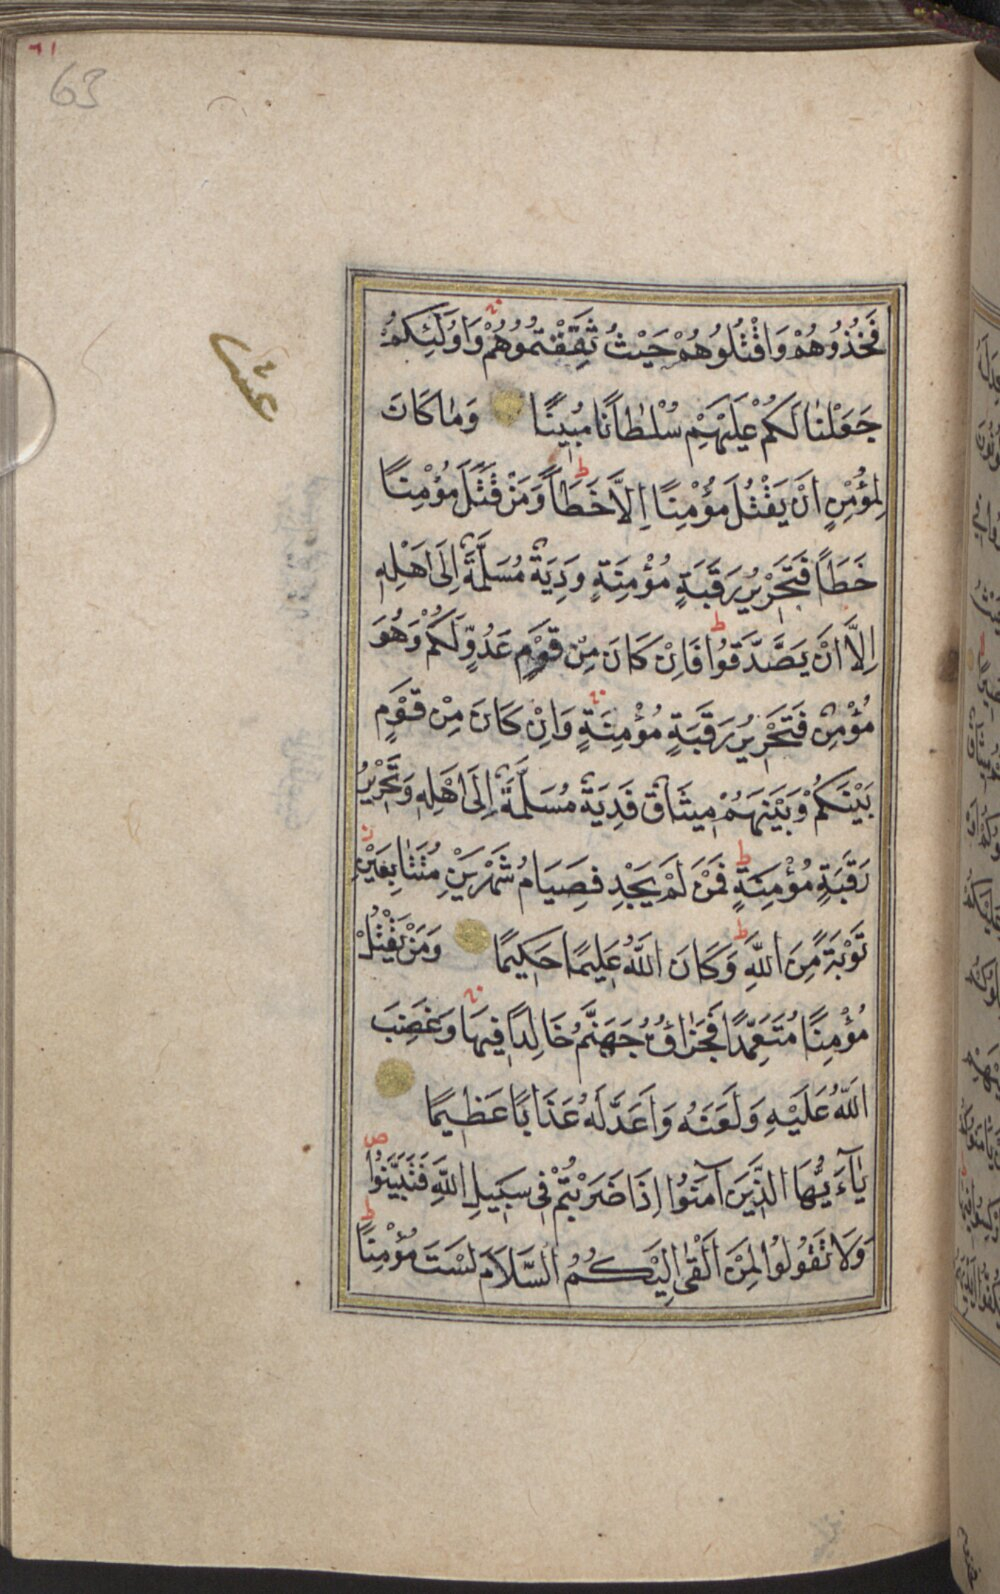 ٦١
63
فَخُذُوهُمْ وَاقْتُلُوهُمْ حَيْثُ ثَقِفْتُمُوهُمْ وَاُولٰئِكُمْ
جَعَلْنَا لَكُمْ عَلَيْهِمْ سُلْطَانًا مُبِينًا وَمَا كَانَ
عشر
لِمُؤْمِنٍ اَنْ يَقْتُلَ مُؤْمِنًا اِلَّا خَطَاً وَمَنْ قَتَلَ مُؤْمِنًا
خَطَاً فَتَحْرِيرُ رَقَبَةٍ مُؤْمِنَةٍ وَدِيَةٌ مُسَلَّمَةٌ اِلَى اَهْلِهِ
اِلَّا اَنْ يَصَّدَّقُوا فَاِنْ كَانَ مِنْ قَوْمٍ عَدُوٍّ لَكُمْ وَهُوَ
مُؤْمِنٌ فَتَحْرِيرُ رَقَبَةٍ مُؤْمِنَةٍ وَاِنْ كَانَ مِنْ قَوْمٍ
بَيْنَكُمْ وَبَيْنَهُمْ مِيثَاقٌ فَدِيَةٌ مُسَلَّمَةٌ اِلَى اَهْلِهِ وَتَحْرِيرُ
رَقَبَةٍ مُؤْمِنَةٍ فَمَنْ لَمْ يَجِدْ فَصِيَامُ شَهْرَيْنِ مُتَتَابِعَيْنِ
تَوْبَةً مِنَ اللّٰهِ وَكَانَ اللّٰهُ عَلِيمًا حَكِيمًا وَمَنْ يَقْتُلْ
مُؤْمِنًا مُتَعَمِّدًا فَجَزَاؤُهُ جَهَنَّمُ خَالِدًا فِيهَا وَغَضِبَ
اللّٰهُ عَلَيْهِ وَلَعَنَهُ وَاَعَدَّ لَهُ عَذَابًا عَظِيمًا
يَاءَيُّهَا الَّذِينَ آمَنُوا اِذَا ضَرَبْتُمْ فِي سَبِيلِ اللّٰهِ فَتَبَيَّنُوا
وَلَا تَقُولُوا لِمَنْ اَلْقٰى اِلَيْكُمُ السَّلَامَ لَسْتَ مُؤْمِنًا